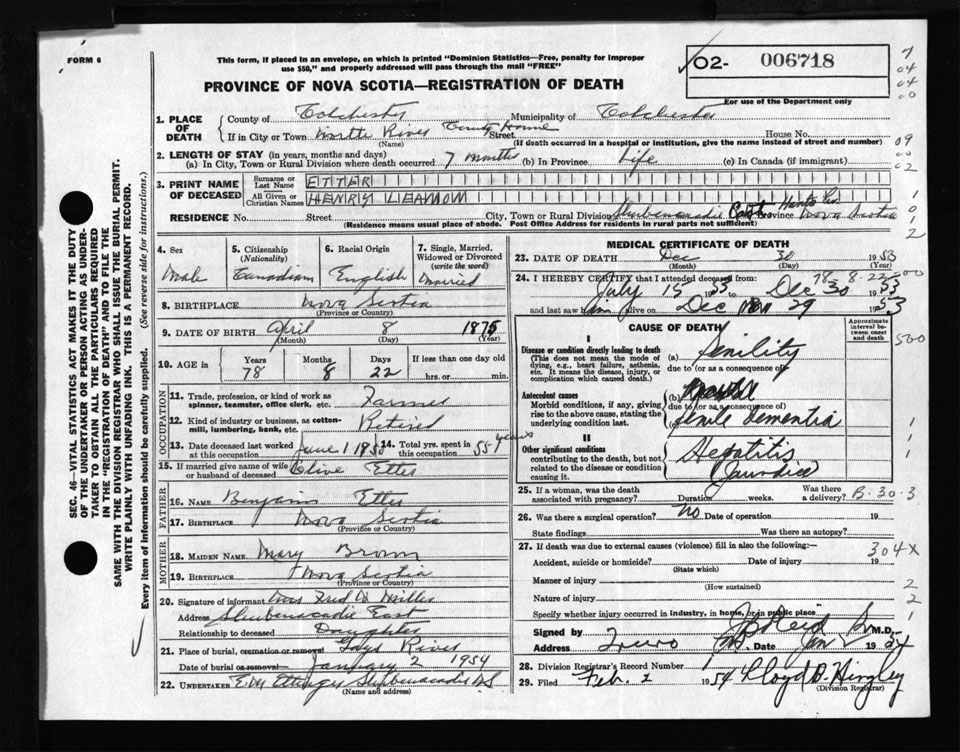 FORM 6
This form, if placed in an envelope, on which is printed "Dominion Statistics—Free, penalty for improper
use $50," and properly addressed will pass through the mail "FREE"
PROVINCE OF NOVA SCOTIA—REGISTRATION OF DEATH
O2- 006718
For use of the Department only
1. PLACE OF DEATH
County of Colchester Municipality of Colchester
If in City or Town North River County Home Street House No.
(Name) (If death occurred in a hospital or institution, give the name instead of street and number)
2. LENGTH OF STAY (in years, months and days)
(a) In City, Town or Rural Division where death occurred 7 months (b) In Province Life (c) In Canada (if immigrant)
3. PRINT NAME OF DECEASED
Surname or Last Name ETTER
All Given or Christian Names HENRY LEAMON
RESIDENCE No. Street City, Town or Rural Division Shubenacadie East Hants Co. Province Nova Scotia
(Residence means usual place of abode. Post Office Address for residents in rural parts not sufficient)
4. Sex Male
5. Citizenship (Nationality) Canadian
6. Racial Origin English
7. Single, Married, Widowed or Divorced (write the word) Married
8. BIRTHPLACE Nova Scotia
(Province or Country)
9. DATE OF BIRTH April 8 1875
(Month) (Day) (Year)
10. AGE in Years 78 Months 8 Days 22 If less than one day old hrs. or min.
OCCUPATION
11. Trade, profession, or kind of work as spinner, teamster, office clerk, etc. Farmer
12. Kind of industry or business, as cotton-mill, lumbering, bank, etc. Retired
13. Date deceased last worked at this occupation June 1 1950
14. Total yrs. spent in this occupation 55 years
15. If married give name of wife or husband of deceased Olive Etter
FATHER
16. NAME Benjamin Etter
17. BIRTHPLACE Nova Scotia
(Province or Country)
MOTHER
18. MAIDEN NAME Mary Brown
19. BIRTHPLACE Nova Scotia
(Province or Country)
20. Signature of informant Mrs Fred W Miller
Address Shubenacadie East
Relationship to deceased Daughter
21. Place of burial, cremation or removal Gays River
Date of burial or removal January 2 1954
22. UNDERTAKER E M Ettinger Shubenacadie N S
(Name and address)
MEDICAL CERTIFICATE OF DEATH
23. DATE OF DEATH Dec 30 1953
(Month) (Day) (Year)
24. I HEREBY CERTIFY that I attended deceased from: 78-8-22
July 15 1953 to Dec 30 1953
and last saw him alive on Dec 29 1953
CAUSE OF DEATH
Approximate interval between onset and death
I
Disease or condition directly leading to death (a) Senility
(This does not mean the mode of dying, e.g., heart failure, asthenia, etc. It means the disease, injury, or complication which caused death.)
due to (or as a consequence of)
Antecedent causes (b)
Morbid conditions, if any, giving rise to the above cause, stating the underlying condition last.
due to (or as a consequence of)
Senile Dementia
II
Other significant conditions
contributing to the death, but not related to the disease or condition causing it.
Hepatitis
(Jaundice)
25. If a woman, was the death associated with pregnancy? Duration weeks. Was there a delivery? B-30-3
26. Was there a surgical operation? No Date of operation 19
State findings Was there an autopsy?
27. If death was due to external causes (violence) fill in also the following:— 304X
Accident, suicide or homicide? Date of injury 19
(State which)
Manner of injury
(How sustained)
Nature of injury
Specify whether injury occurred in industry, in home, or in public place
Signed by J B Reid M.D.
Address Truro Date Jan 19 54
28. Division Registrar's Record Number 1
29. Filed Feb. 2 1954 Lloyd B. Hingley
(Division Registrar)
SEC. 46—VITAL STATISTICS ACT MAKES IT THE DUTY
OF THE UNDERTAKER OR PERSON ACTING AS UNDER-
TAKER TO OBTAIN ALL THE PARTICULARS REQUIRED
IN THE "REGISTRATION OF DEATH" AND TO FILE THE
SAME WITH THE DIVISION REGISTRAR WHO SHALL ISSUE THE BURIAL PERMIT.
WRITE PLAINLY WITH UNFADING INK. THIS IS A PERMANENT RECORD.
Every item of Information should be carefully supplied. (See reverse side for instructions.)